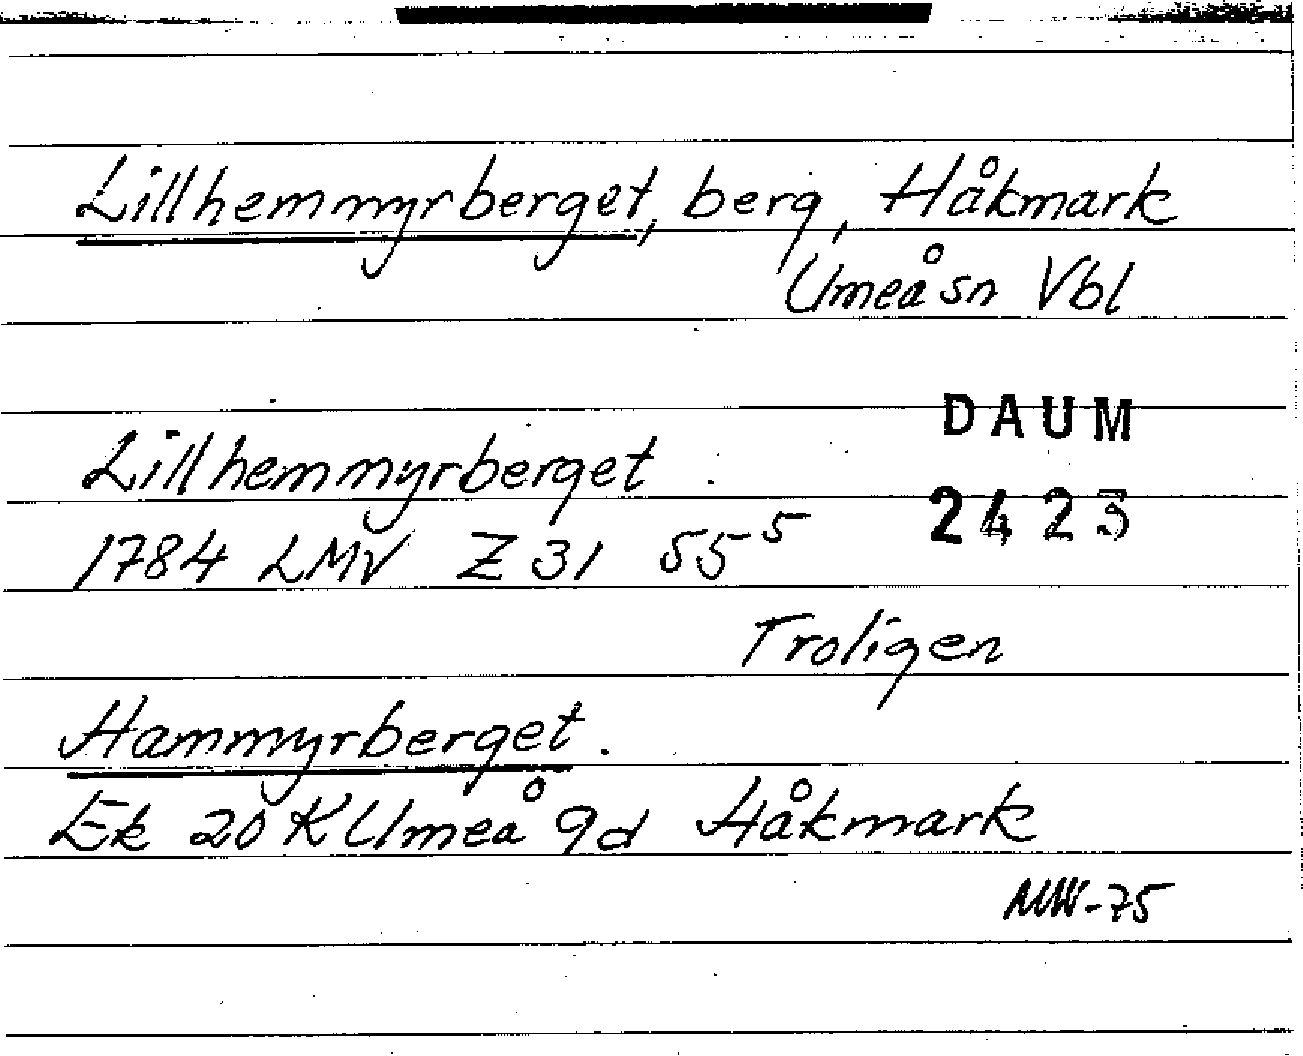 Lillhemmyrberget, berg, Håkmark
Umeå sn Vbl
DAUM
Lillhemmyrberget
2423
1784 LMV Z 31 55⁵
Troligen
Hammyrberget.
Ek 20 K Umeå 9d Håkmark
MW-75